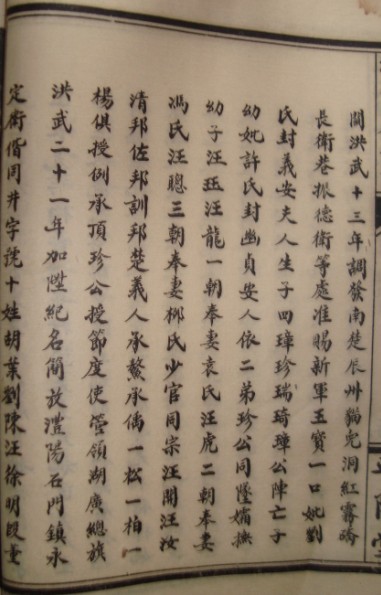 關洪武十三年調發南楚辰州貓兒洞紅霧橋
長衛巷振德衛等處准賜新軍玉寳一口妣劉
氏封義安夫人生子四璋珍瑞琦璋公陣亡子
幼妣許氏封幽貞安人依二弟珍公同陞孀撫
幼子汪玨汪龍一朝奉妻袁氏汪虎二朝奉妻
馮氏汪聰三朝奉妻柳氏少官同宗汪開汪汝
清邦佐邦訓邦楚義人承鰲承僑一松一柏一
楊俱授例承頂珍公授節度使管領湖廣總旗
洪武二十一年加陞紀名簡放澧陽石門鎮永
定衛偕同井字號十姓胡葉劉陳汪徐明段董